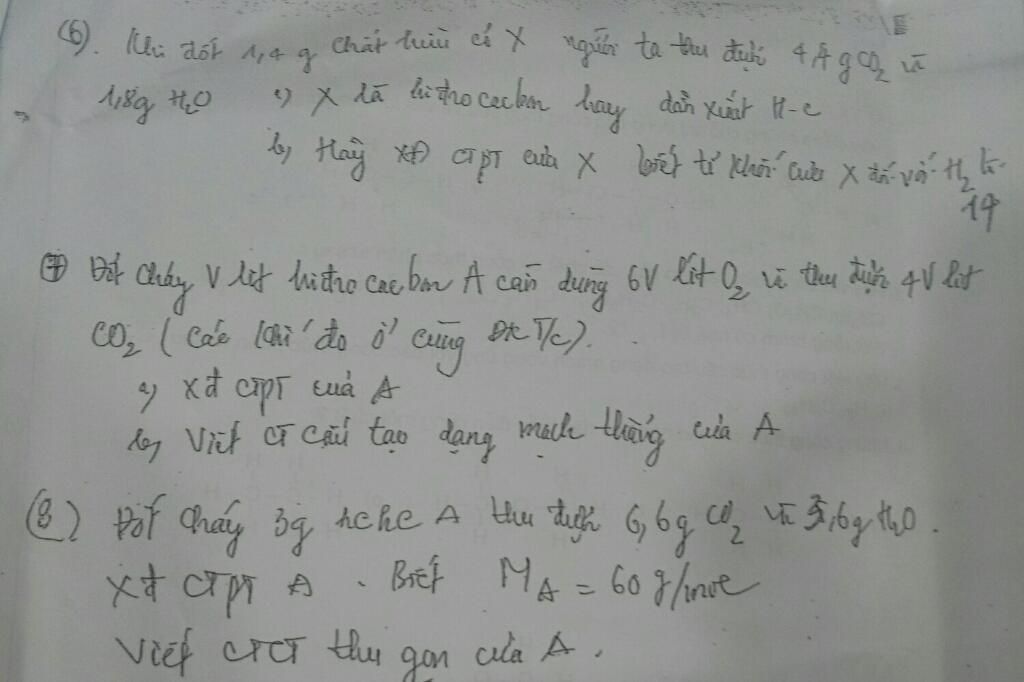 (6). Khi đốt 1,4 g chất hữu cơ X người ta thu được 4,4 g CO2 và
1,8g H2O a) X là hiđrocacbon hay dẫn xuất H-C
b, Hãy XĐ CTPT của X biết tỉ khối của X đối với H2 là
14
(7) Đốt cháy V lít hiđrocacbon A cần dùng 6V lít O2 và thu được 4V lít
CO2 (các khí đo ở cùng ĐK T/c).
a) Xđ CTPT của A
b, Viết CT cấu tạo dạng mạch thẳng của A
(8) Đốt cháy 3g hchc A thu được 6,6g CO2 và 3,6g H2O.
Xđ CTPT A. Biết MA = 60 g/mol
Viết CTCT thu gọn của A.